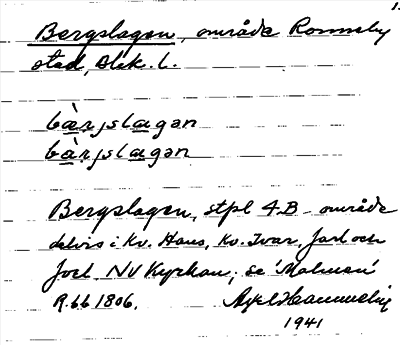 1.
Bergslagen, område Ronneby
stad, Blek. l.
bær̀jslagən
bàrjslagən
Bergslagen, stpl 4.B - område
delvis i Kv. Hans, Kv. Ivar, Jarl och
Joel NV Kyrkan; se 'Malmen'
R.bb 1806.
1941